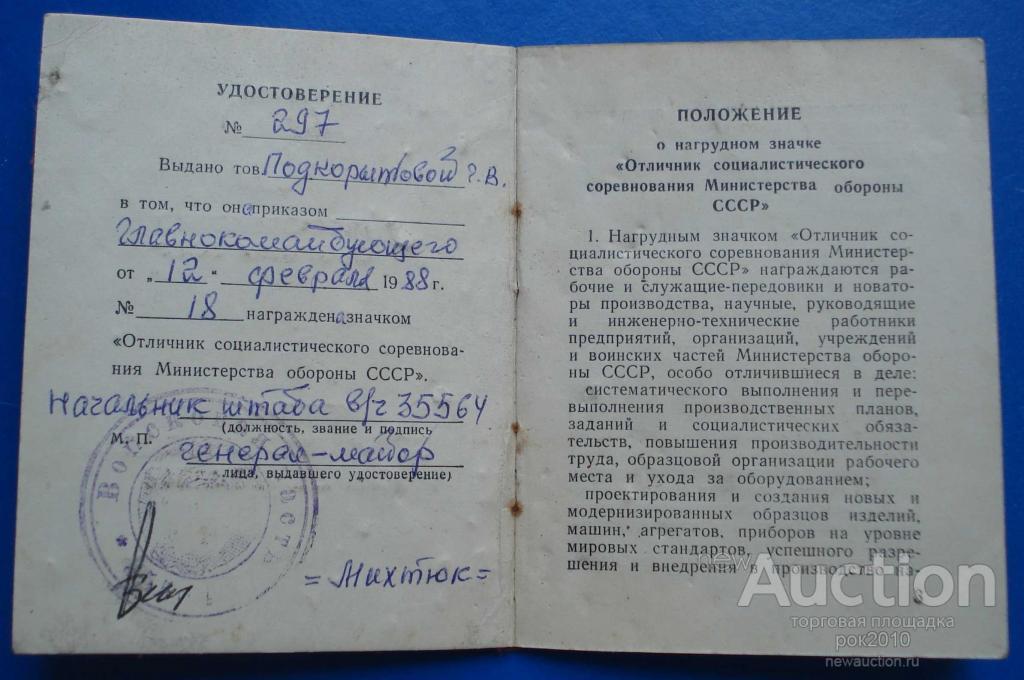 УДОСТОВЕРЕНИЕ
№ 297
Выдано тов. Подкорытовой Г.В.
в том, что она приказом
Главнокомандующего
от „12“ февраля 1988 г.
№ 18 награждена значком
«Отличник социалистического соревнова-
ния Министерства обороны СССР».
Начальник штаба в/ч 35564
(должность, звание и подпись
М. П. генерал-майор
лица, выдавшего удостоверение)
=Михтюк=
ПОЛОЖЕНИЕ
о нагрудном значке
«Отличник социалистического
соревнования Министерства обороны
СССР»
1. Нагрудным значком «Отличник со-
циалистического соревнования Министер-
ства обороны СССР» награждаются ра-
бочие и служащие-передовики и новато-
ры производства, научные, руководящие
и инженерно-технические работники
предприятий, организаций, учреждений
и воинских частей Министерства оборо-
ны СССР, особо отличившиеся в деле:
систематического выполнения и пере-
выполнения производственных планов,
заданий и социалистических обяза-
тельств, повышения производительности
труда, образцовой организации рабочего
места и ухода за оборудованием;
проектирования и создания новых и
модернизированных образцов изделий,
машин, агрегатов, приборов на уровне
мировых стандартов, успешного разре-
шения и внедрения в производство на-
newAuction
торговая площадка
рок2010
newauction.ru